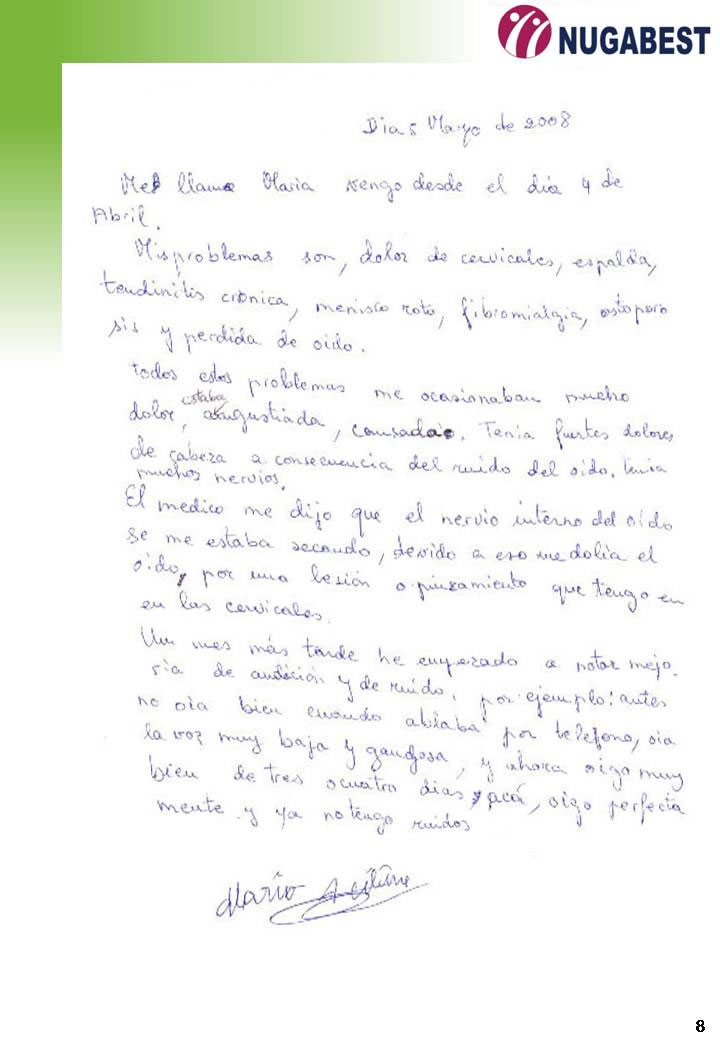 NUGABEST
Dia 5 Mayo de 2008
Me llamo Maria vengo desde el día 4 de
Abril.
Mis problemas son, dolor de cervicales, espalda,
tendinitis crónica, menisco roto, fibromialgia, ostoporo
sis y perdida de oido.
todos estos problemas me ocasionaban mucho
dolor, estaba angustiada, cansada. Tenia fuertes dolores
de cabeza a consecuencia del ruido del oido, tenia
muchos nervios.
El medico me dijo que el nervio interno del oído
se me estaba secando, devido a eso me dolia el
oido, por una lesión o pinzamiento que tengo en
en las cervicales.
Un mes más tarde he empezado a notar mejo.
ria de audición y de ruido, por ejemplo: antes
no oia bien cuando ablaba por telefono, oia
la voz muy baja y gangosa, y ahora oigo muy
bien de tres o cuatro dias acá, oigo perfecta
mente y ya no tengo ruidos
8